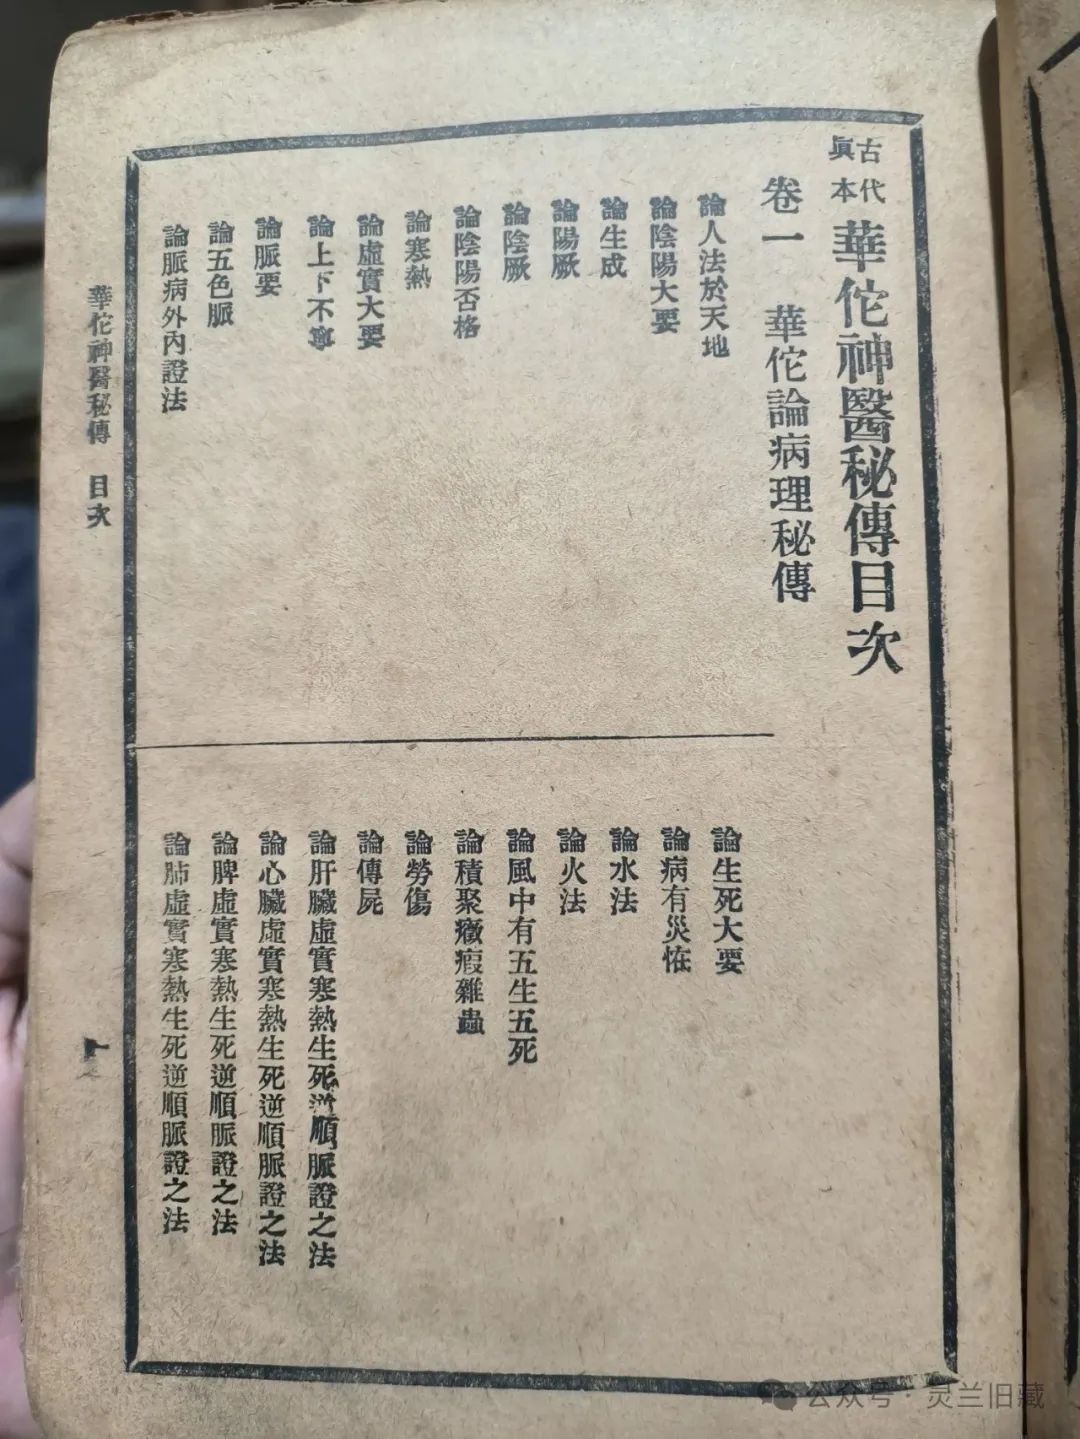 古代眞本 華佗神醫秘傳目次
卷一 華佗論病理秘傳
論人法於天地
論陰陽大要
論生成
論陽厥
論陰厥
論陰陽否格
論寒熱
論虛實大要
論上下不寧
論脈要
論五色脈
論脈病外內證法
論生死大要
論病有災怪
論水法
論火法
論風中有五生五死
論積聚癥瘕雜蟲
論勞傷
論傳屍
論肝臟虛實寒熱生死逆順脈證之法
論心臟虛實寒熱生死逆順脈證之法
論脾虛實寒熱生死逆順脈證之法
論肺虛實寒熱生死逆順脈證之法
華佗神醫秘傳 目次
公众号·灵兰旧藏